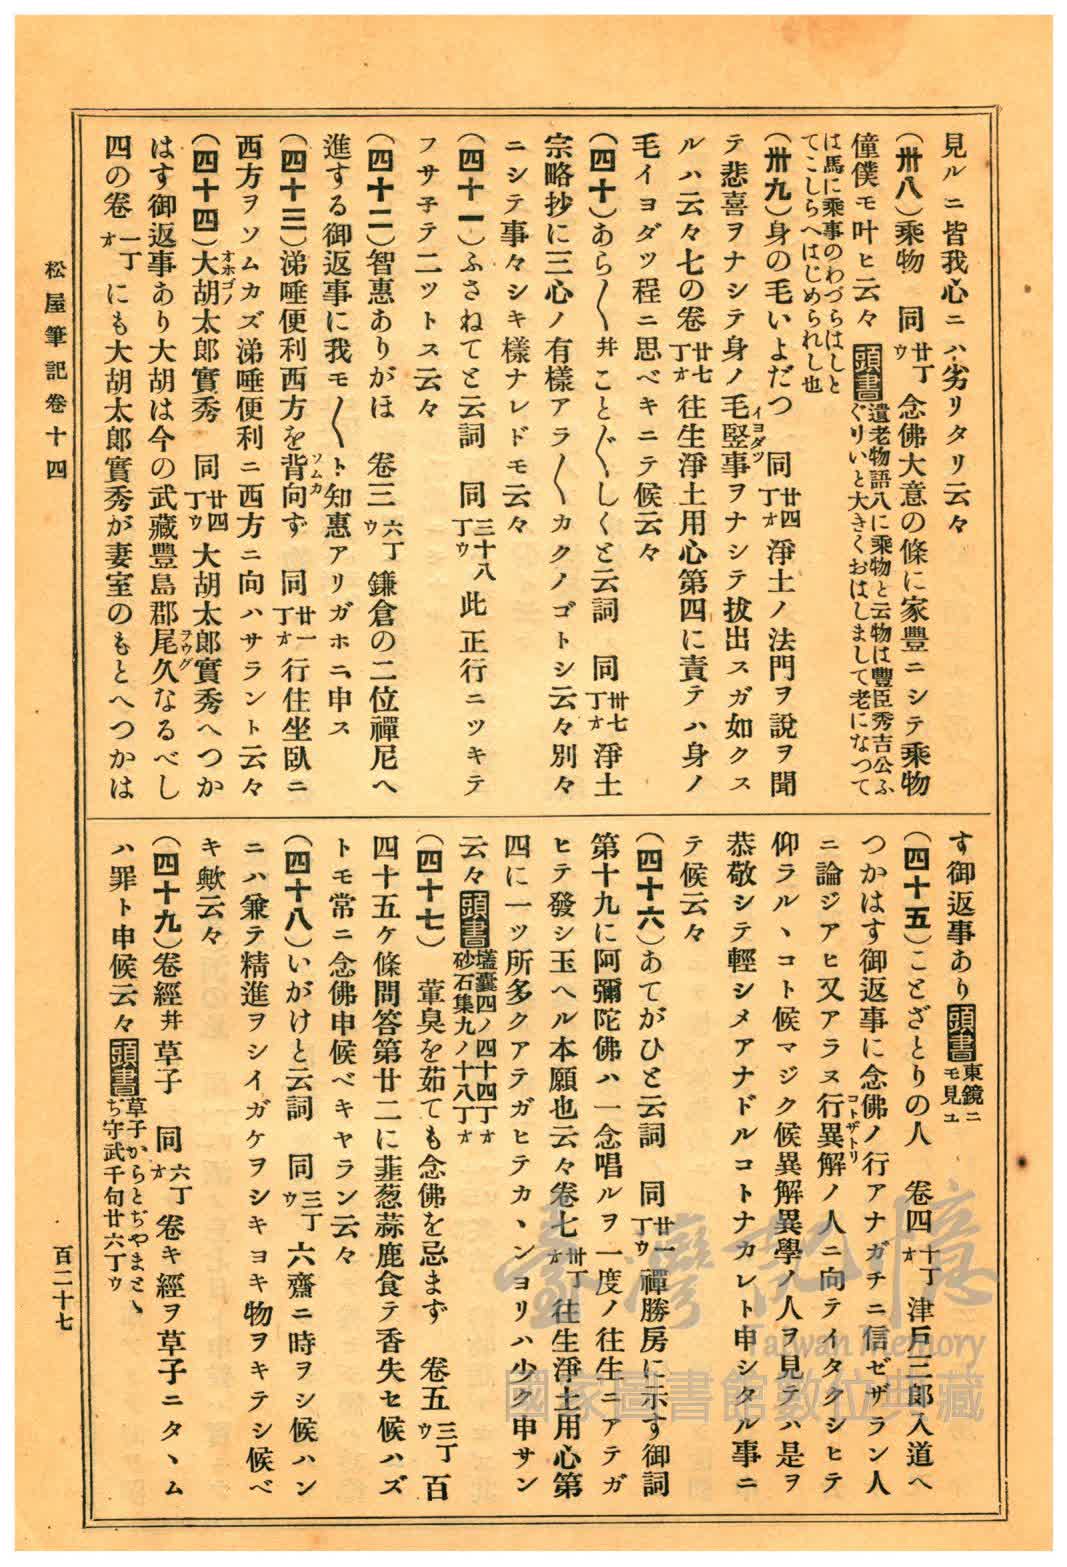 見ルニ皆我心ニハ劣リタリ云々
(卅八)乘物　同廿丁ウ念佛大意の條に家豐ニシテ乘物
僮僕モ叶ヒ云々頭書遺老物語八に乘物と云物は豐臣秀吉公ふ
ぐりいと大きくおはしまして老になつて
は馬に乘事のわづらはしと
てこしらへはじめられし也
(卅九)身の毛いよだつ　同廿四丁オ淨土ノ法門ヲ說ヲ聞
テ悲喜ヲナシテ身ノ毛竪イヨダツ事ヲナシテ拔出スガ如クス
ルハ云々七の卷廿七丁オ往生淨土用心第四に責テハ身ノ
毛イヨダツ程ニ思ベキニテ候云々
(四十)あら〳〵井こと〴〵しくと云詞　同卅七丁オ淨土
宗略抄に三心ノ有樣アラ〳〵カクノゴトシ云々別々
ニシテ事々シキ樣ナレドモ云々
(四十一)ふさねてと云詞　同三十八丁ウ此正行ニツキテ
フサ子テ二ツトス云々
(四十二)智惠ありがほ　卷三六丁ウ鎌倉の二位禪尼へ
進する御返事に我モ〳〵ト知惠アリガホニ申ス
(四十三)涕唾便利西方を背向ソムカず　同廿一丁オ行住坐臥ニ
西方ヲソムカズ涕唾便利ニ西方ニ向ハサラント云々
(四十四)大胡オホゴノ太郎實秀　同廿四丁ウ大胡太郎實秀へつか
はす御返事あり大胡は今の武藏豐島郡尾久ヲウグなるべし
四の卷一丁オにも大胡太郎實秀が妻室のもとへつかは
す御返事あり頭書東鏡ニモ見ユ
(四十五)ことざとりの人　卷四十丁オ津戶三郎入道へ
つかはす御返事に念佛ノ行アナガチニ信ゼザラン人
ニ論ジアヒ又アラヌ行異解コトザトリノ人ニ向テイタクシヒテ
仰ラルヽコト候マジク候異解異學ノ人ヲ見テハ是ヲ
恭敬シテ輕シメアナドルコトナカレト申シタル事ニ
テ候云々
(四十六)あてがひと云詞　同廿一丁ウ禪勝房に示す御詞
第十九に阿彌陀佛ハ一念唱ルヲ一度ノ往生ニアテガ
ヒテ發シ玉ヘル本願也云々卷七卅丁オ往生淨土用心第
四に一ツ所多クアテガヒテカヽンヨリハ少ク申サン
云々頭書壒囊四ノ四十四丁オ
砂石集九ノ十八丁オ
(四十七)　葷臭を茹ても念佛を忌まず　卷五三丁ウ百
四十五ケ條問答第廿二に韮葱蒜鹿食テ香失セ候ハズ
トモ常ニ念佛申候ベキヤラン云々
(四十八)いがけと云詞　同三丁ウ六齋ニ時ヲシ候ハン
ニハ兼テ精進ヲシイガケヲシキヨキ物ヲキテシ候ベ
キ歟云々
(四十九)卷經井草子　同六丁オ卷キ經ヲ草子ニタヽム
ハ罪ト申候云々頭書草子からとぢやまとゝ
ぢ守武千句廿六丁ウ
松屋筆記卷十四
百二十七
臺灣記憶
Taiwan Memory
國家圖書館數位典藏